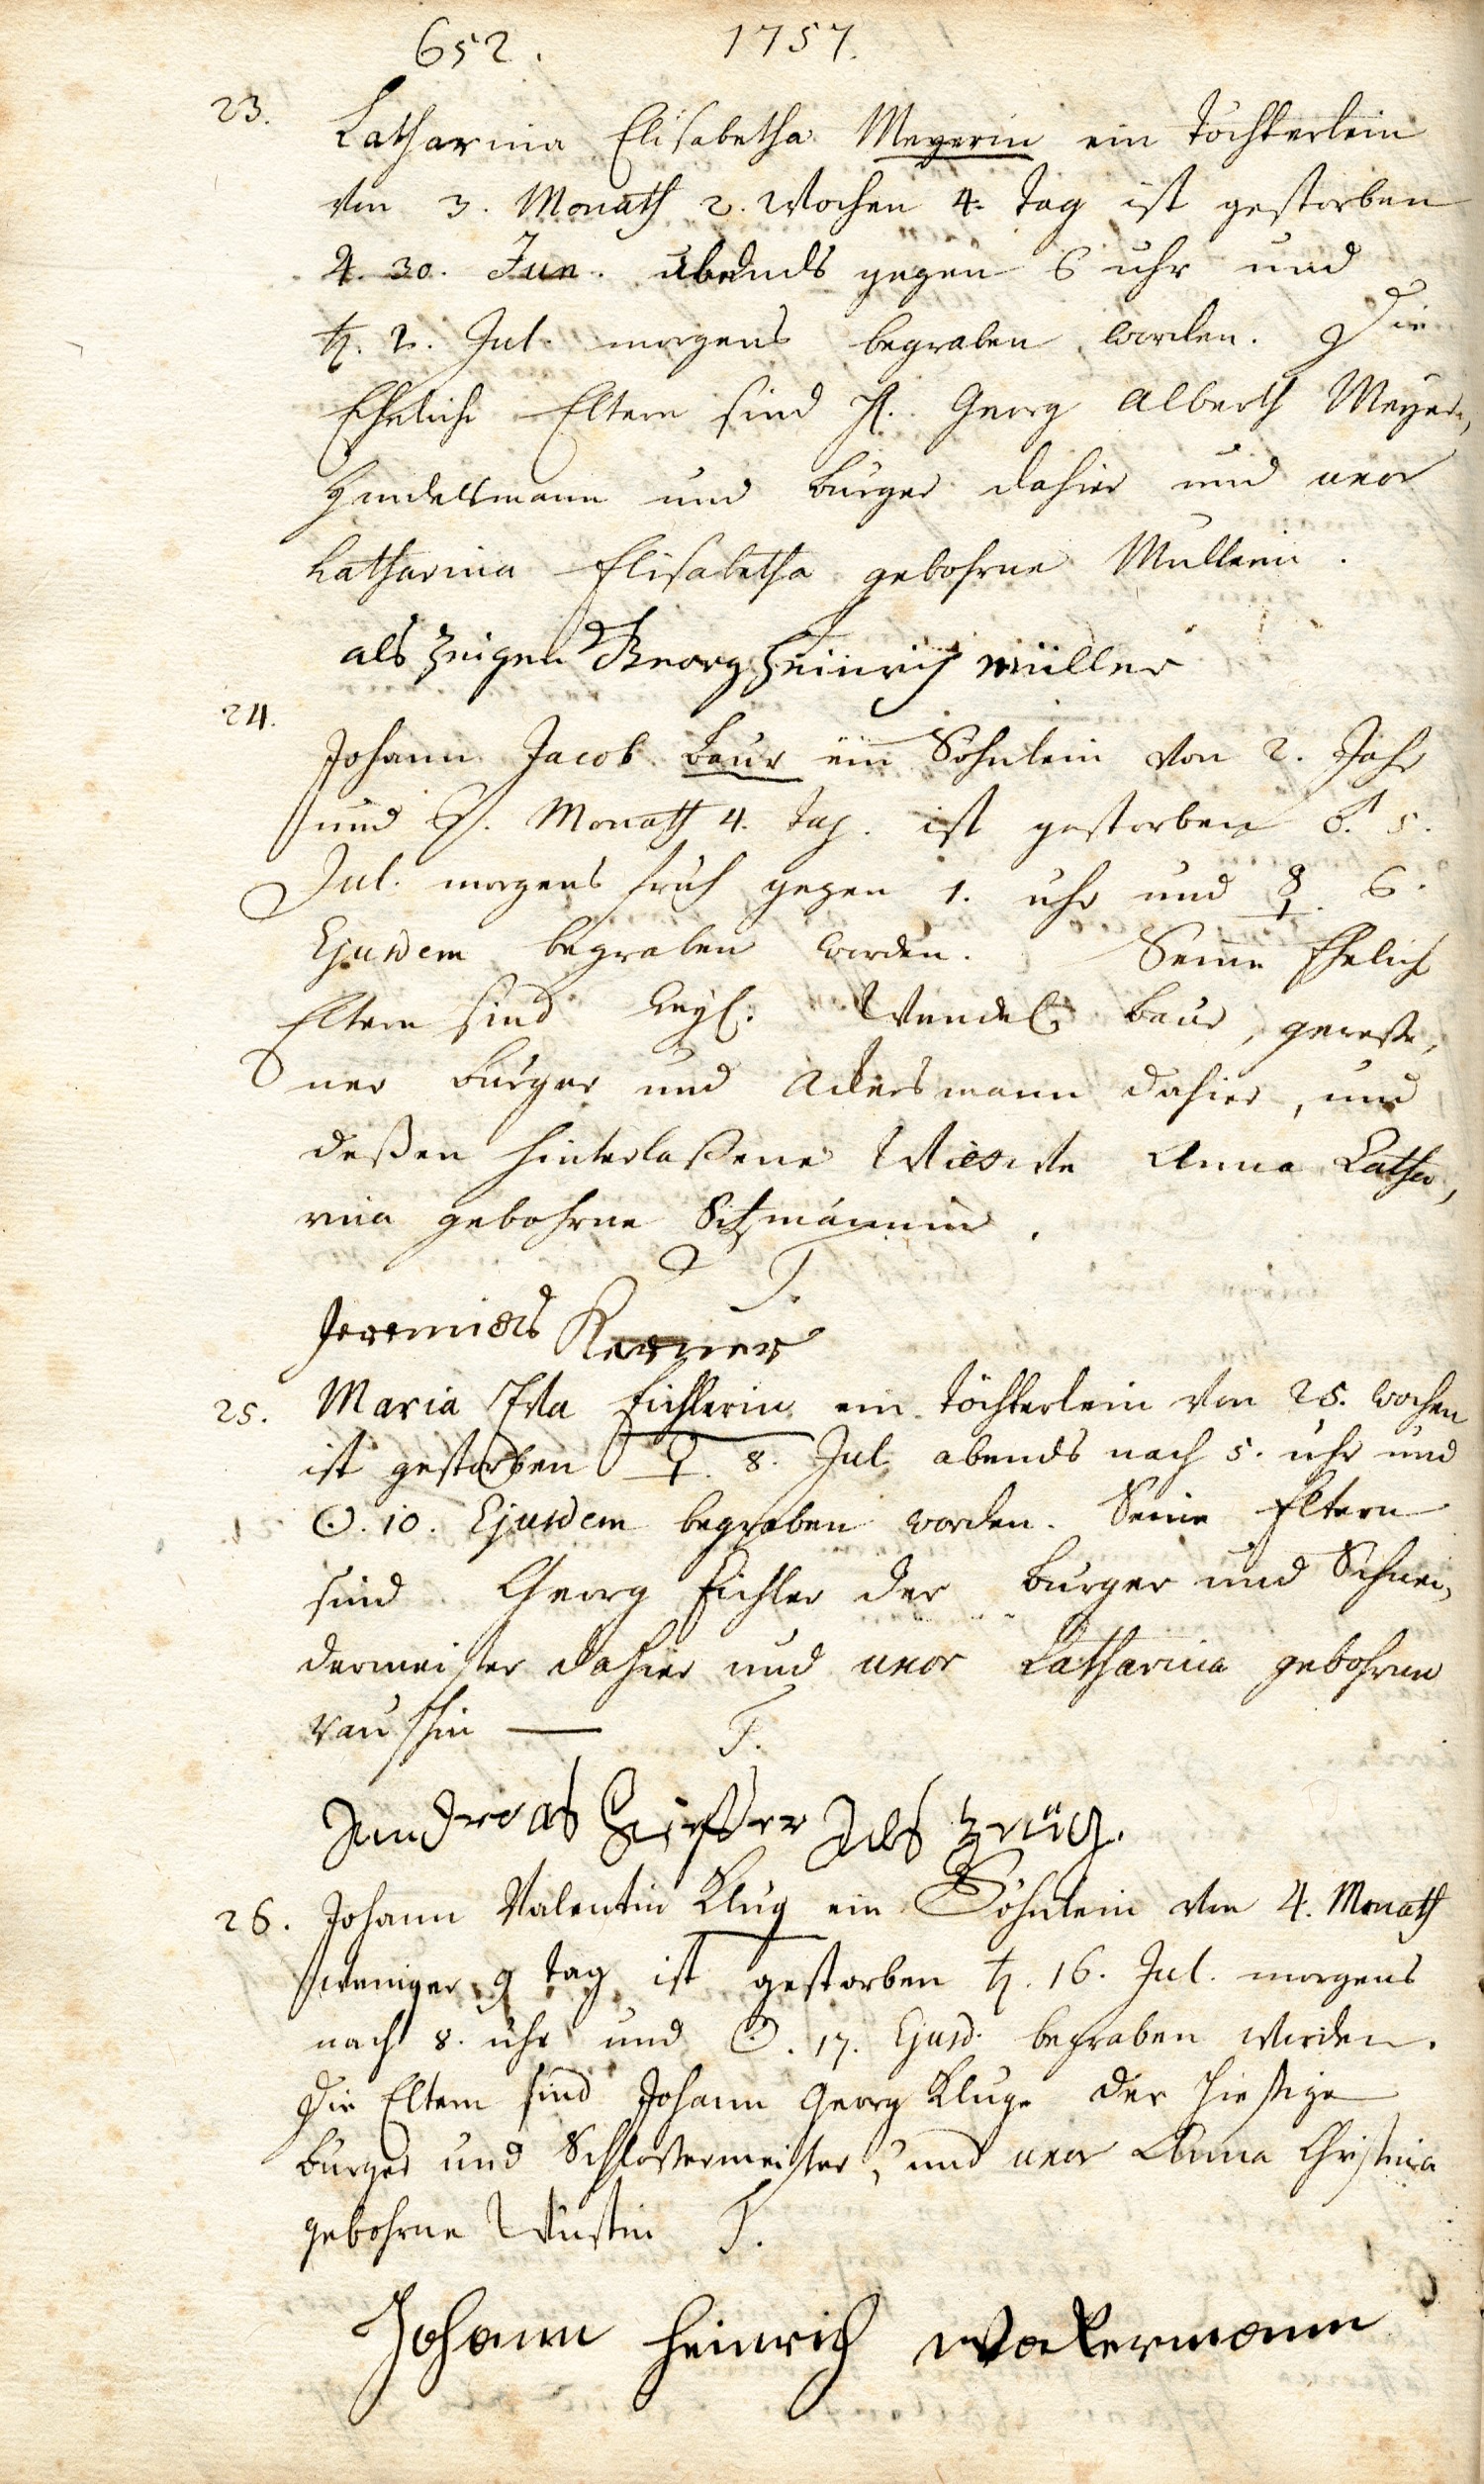 652. 1757.
23. Catharina Elisabetha Meyerin ein Töchterlein
von 3. Monath 2. Wochen 4. Tag ist gestorben
♃. 30. Jun. abends gegen 6 uhr und
♄. 2. Jul. morgens begraben worden. Die
Eheliche Eltern sind H. Georg Alberth Meyer,
Handelsmann und burger dahier und uxor
Catharina Elisabetha gebohrne Mullerin.
als zeigen Georg Heinrich müller
24.
Johann Jacob Baur ein Sohnlein von 2. Jahr
und Monath 4. Tag. ist gestorben ♂. 5.
Jul. morgens fruh gegen 1. uhr und ☿. 6.
Ejusdem begraben worden. Seine Ehelich
Eltern sind weyl. Wendel Baur, gewesße,
ner burger und Ackersmann dahier, und
deßen hinterlaßene Wittwe Anna Catha,
rina gebohrne
T.
Jeremias Kerner
25. Maria Eva Eichlerin ein töchterlein von 25. wochen
ist gestorben ♀. 8. Jul. abends nach 5. uhr und
☉. 10. Ejusdem begraben worden. Seine Eltern
sind Georg Eichler der burger und Schnei,
dermeister dahier und uxor Catharina gebohrne
Rauschin — T.
Andreas als zeüg.
26. Johann Valentin Klug ein Söhnlein von 4. Monath
weniger 9 tag ist gestorben ♄. 16. Jul. morgens
nach 8. uhr und ☉. 17. Ejusd. begraben worden.
Die Eltern sind Johann Georg Kluge der hiesige
burger und Schloßermeister, und uxor Anna Christina
gebohrne Wüstin T.
Johann Heinrich Wakermann